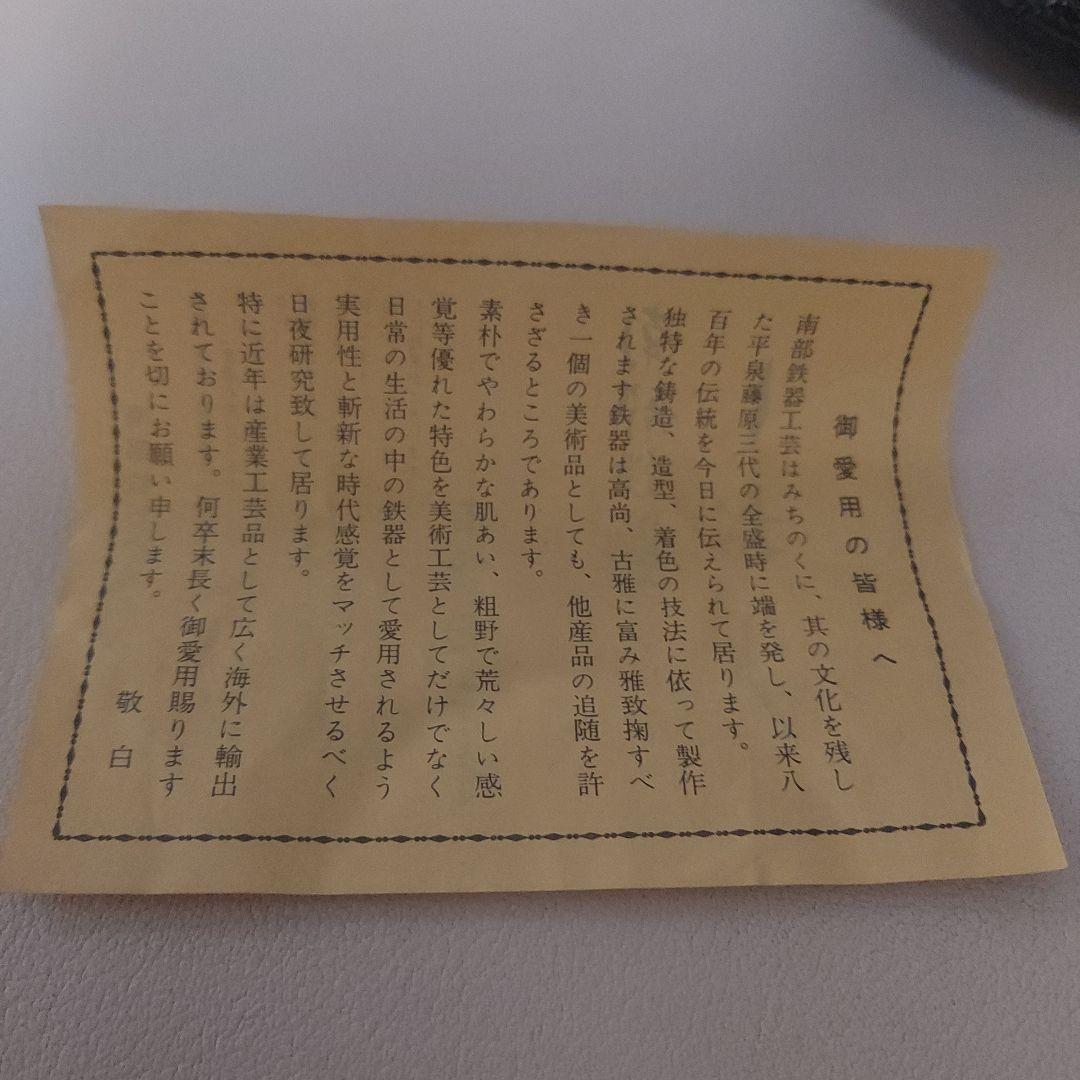 御愛用の皆様へ
南部鉄器工芸はみちのくに、其の文化を残し
た平泉藤原三代の全盛時に端を発し、以来八
百年の伝統を今日に伝えられて居ります。
独特な鋳造、造型、着色の技法に依って製作
されます鉄器は高尚、古雅に富み雅致掬すべ
き一個の美術品としても、他産品の追随を許
さざるところであります。
素朴でやわらかな肌あい、粗野で荒々しい感
覚等優れた特色を美術工芸としてだけでなく
日常の生活の中の鉄器として愛用されるよう
実用性と斬新な時代感覚をマッチさせるべく
日夜研究致して居ります。
特に近年は産業工芸品として広く海外に輸出
されております。何卒末長く御愛用賜ります
ことを切にお願い申します。
敬白